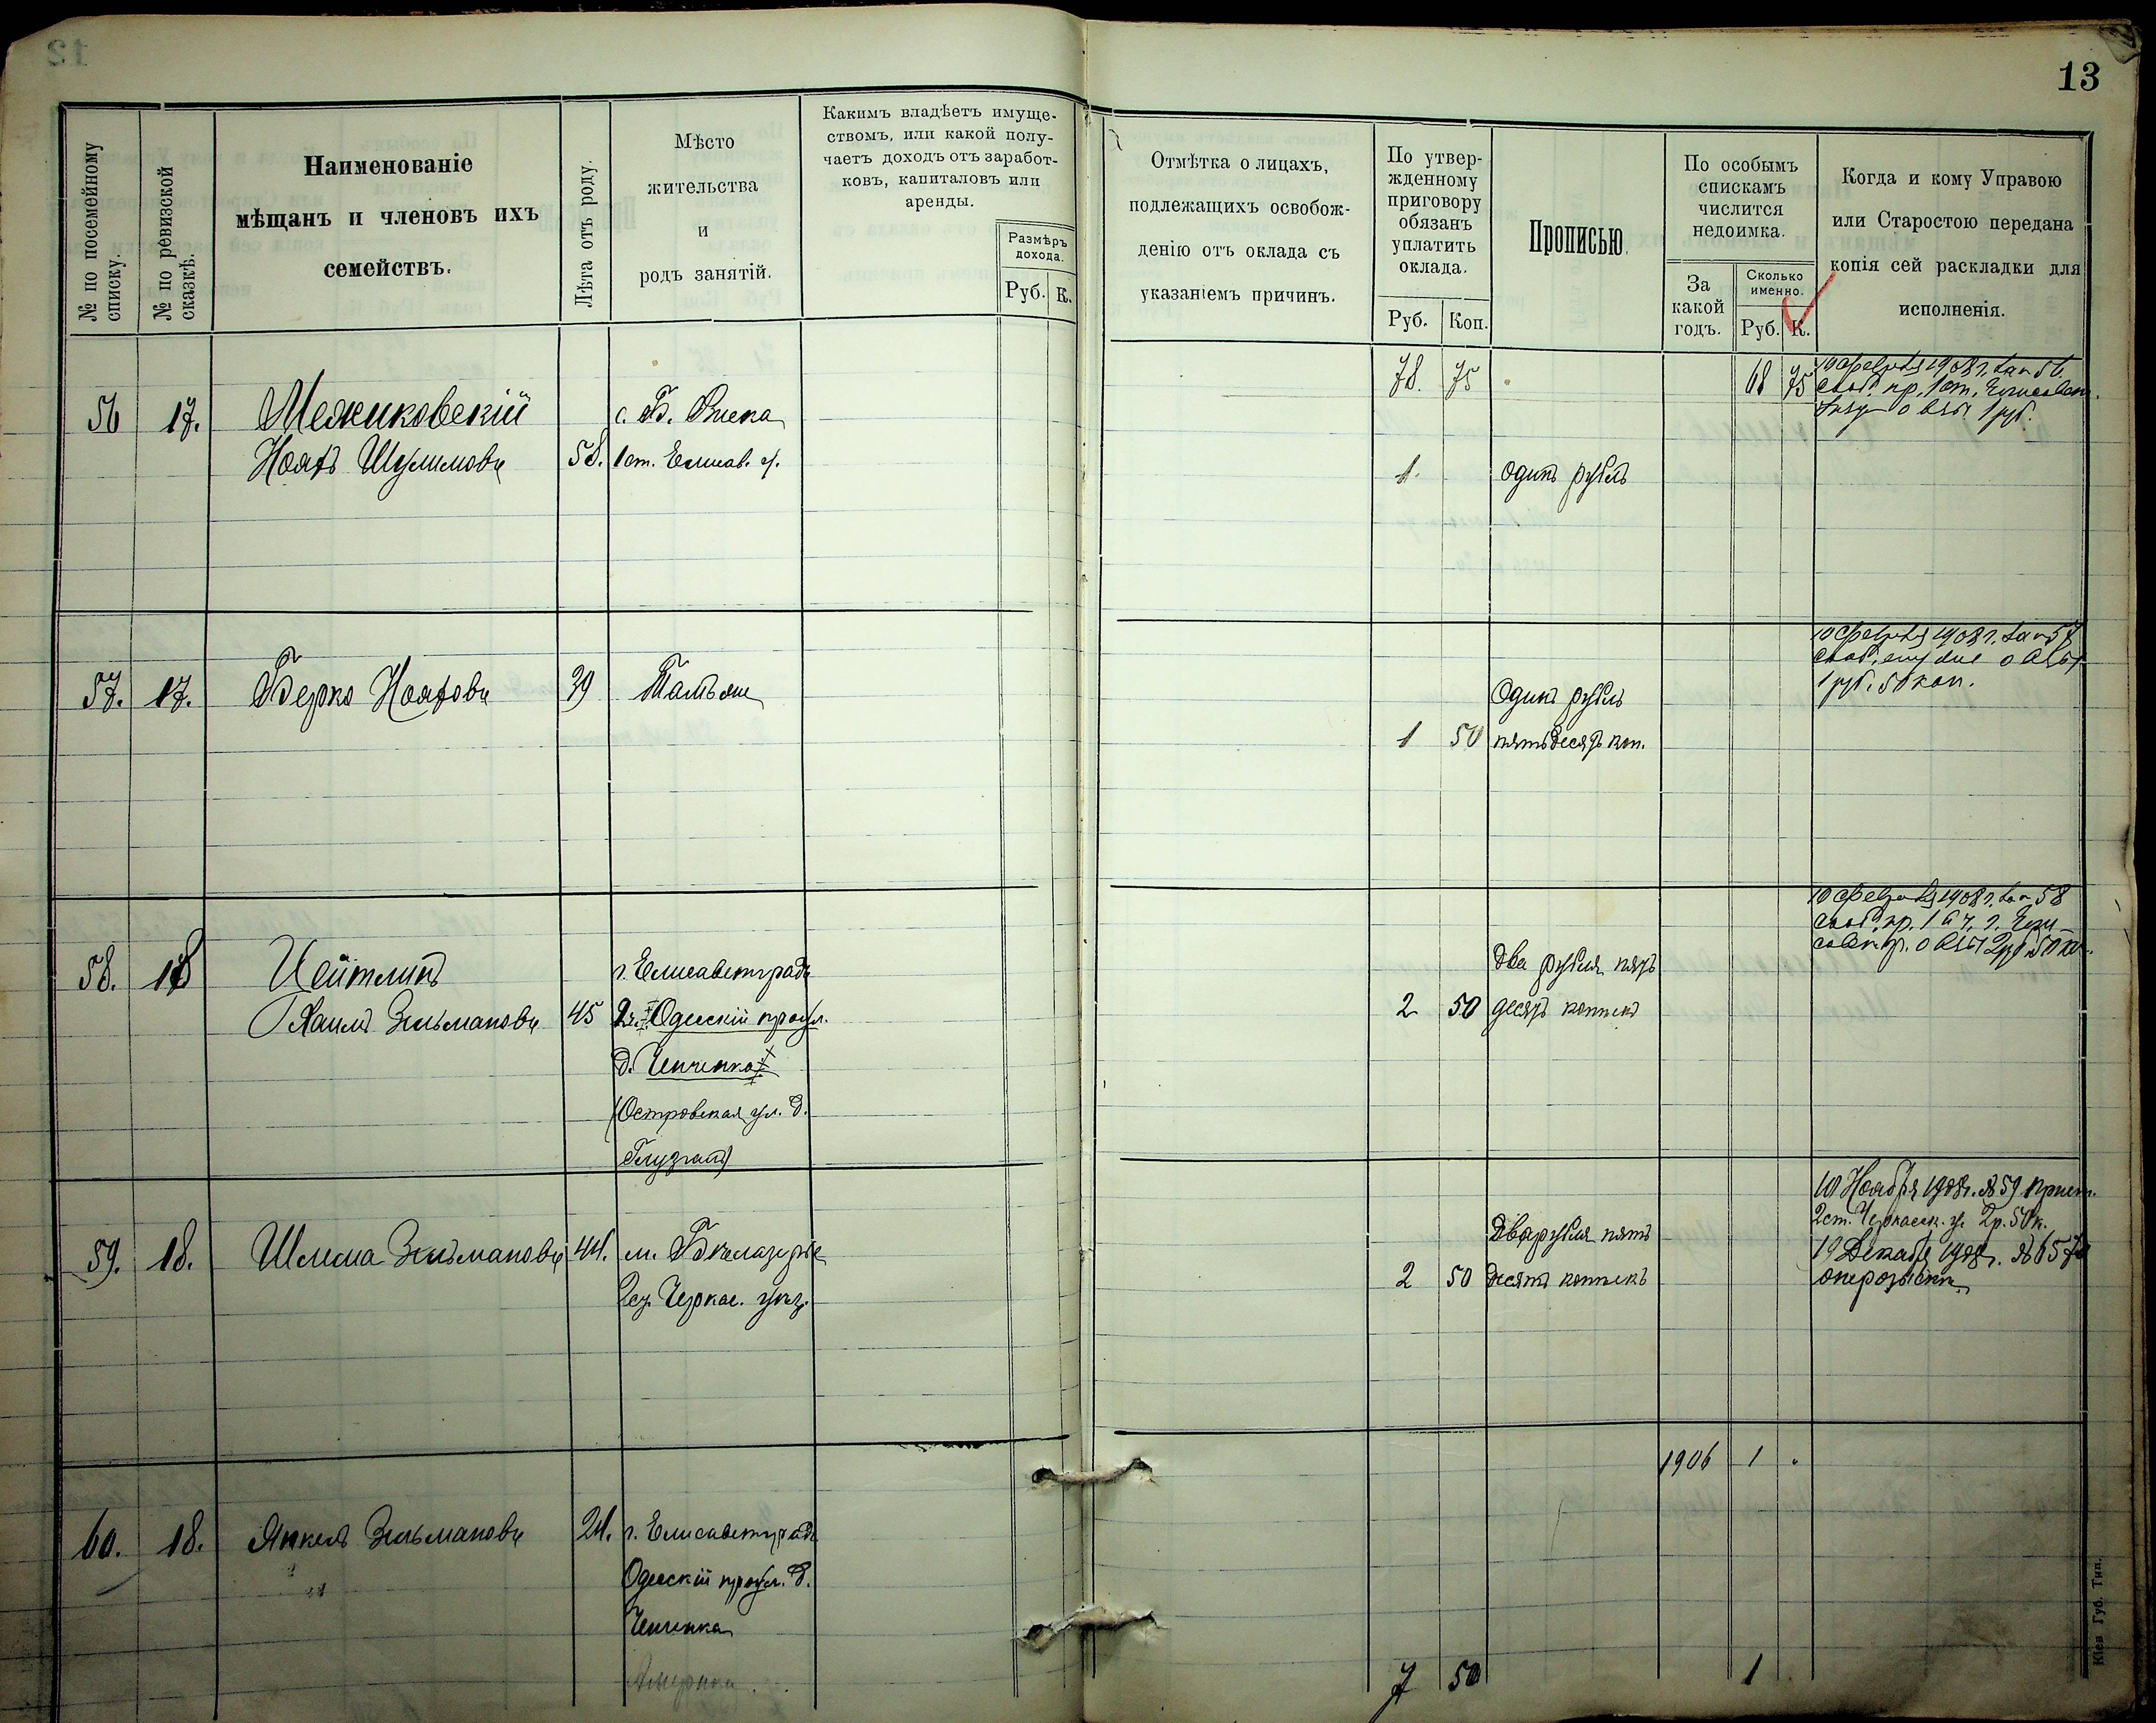 13
№ по посемейному
списку.
№ по ревизской
сказкѣ.
Наименованіе
мѣщанъ и членовъ ихъ
семействъ.
Лѣта отъ роду.
Мѣсто
жительства
и
родъ занятій.
Какимъ владѣетъ имуще-
ствомъ, или какой полу-
чаетъ доходъ отъ заработ-
ковъ, капиталовъ или
аренды.
Размѣръ
дохода.
Руб. К.
Отмѣтка о лицахъ,
подлежащихъ освобож-
денію отъ оклада съ
указаніемъ причинъ.
По утвер-
жденному
приговору
обязанъ
уплатить
оклада.
Руб. Коп.
Прописью.
По особымъ
спискамъ
числится
недоимка.
За
какой
годъ.
Сколько
именно.
Руб. К.
Когда и кому Управою
или Старостою передана
копія сей раскладки для
исполненія.
78. 75
68 75
56 17. Межиковскій
с. Б. Виска
Ноахъ Шулимовъ 58. 1 ст. Елисав. у.
1. Одинъ рубль
10 1908 г. за № 56
1 руб.
57. 17. Берко Ноаховъ 39 Тамъ же
Одинъ рубль
1 50 пятьдесятъ коп.
10 1908 г. за № 57
1 руб. 50 коп.
58. 18 Цейтлинъ
Хаимъ Зельмановъ 45
г. Елисаветградъ
Одесскій проул.
д. Ченченка
(Островская ул. д.
Два рубля пять
2 50 десятъ копѣекъ
10 1908 г. за № 58
59. 18. Шлема Зельмановъ 44. м. Бѣлазерье
2 ст. Черкас. уѣз.
Два рубля пять
2 50 десятъ копѣекъ
10 Ноября 1908 г. № 59 Прист.
2 ст. Черкасск. у. 2 р. 50 к.
19 Декабря 1908 г. № 657
о нерозыскѣ
1906 1
60. 18. Янкель Зельмановъ 24. г. Елисаветградъ
Одесскій проул. д.
Ченченка
Америка
7 50
1
Кіев. Губ. Тип.